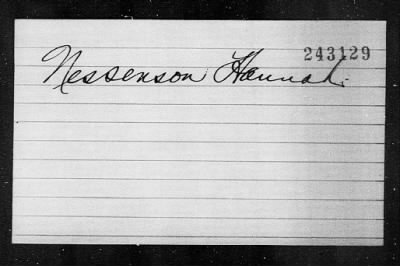 243129
Nessenson Hannah.